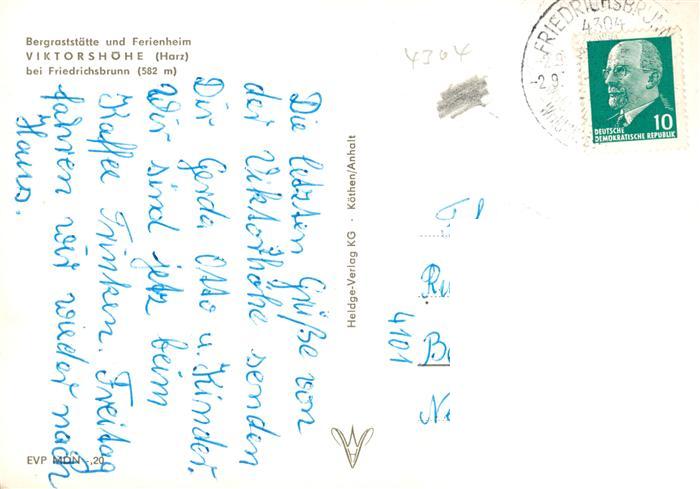 Bergraststätte und Ferienheim
VIKTORSHÖHE (Harz)
bei Friedrichsbrunn (582 m)
4304
FRIEDRICHSBRUNN
4304
10
DEUTSCHE
DEMOKRATISCHE REPUBLIK
Die letzten Grüße von
der Viktorhöhe senden
Dir Gerda Otto u. Kinder.
Wir sind jetz beim
Kaffee Trinken. Freitag
fahren wir wieder nach
Haus.
Heldge-Verlag KG · Köthen/Anhalt
4101
EVP MDN -,20